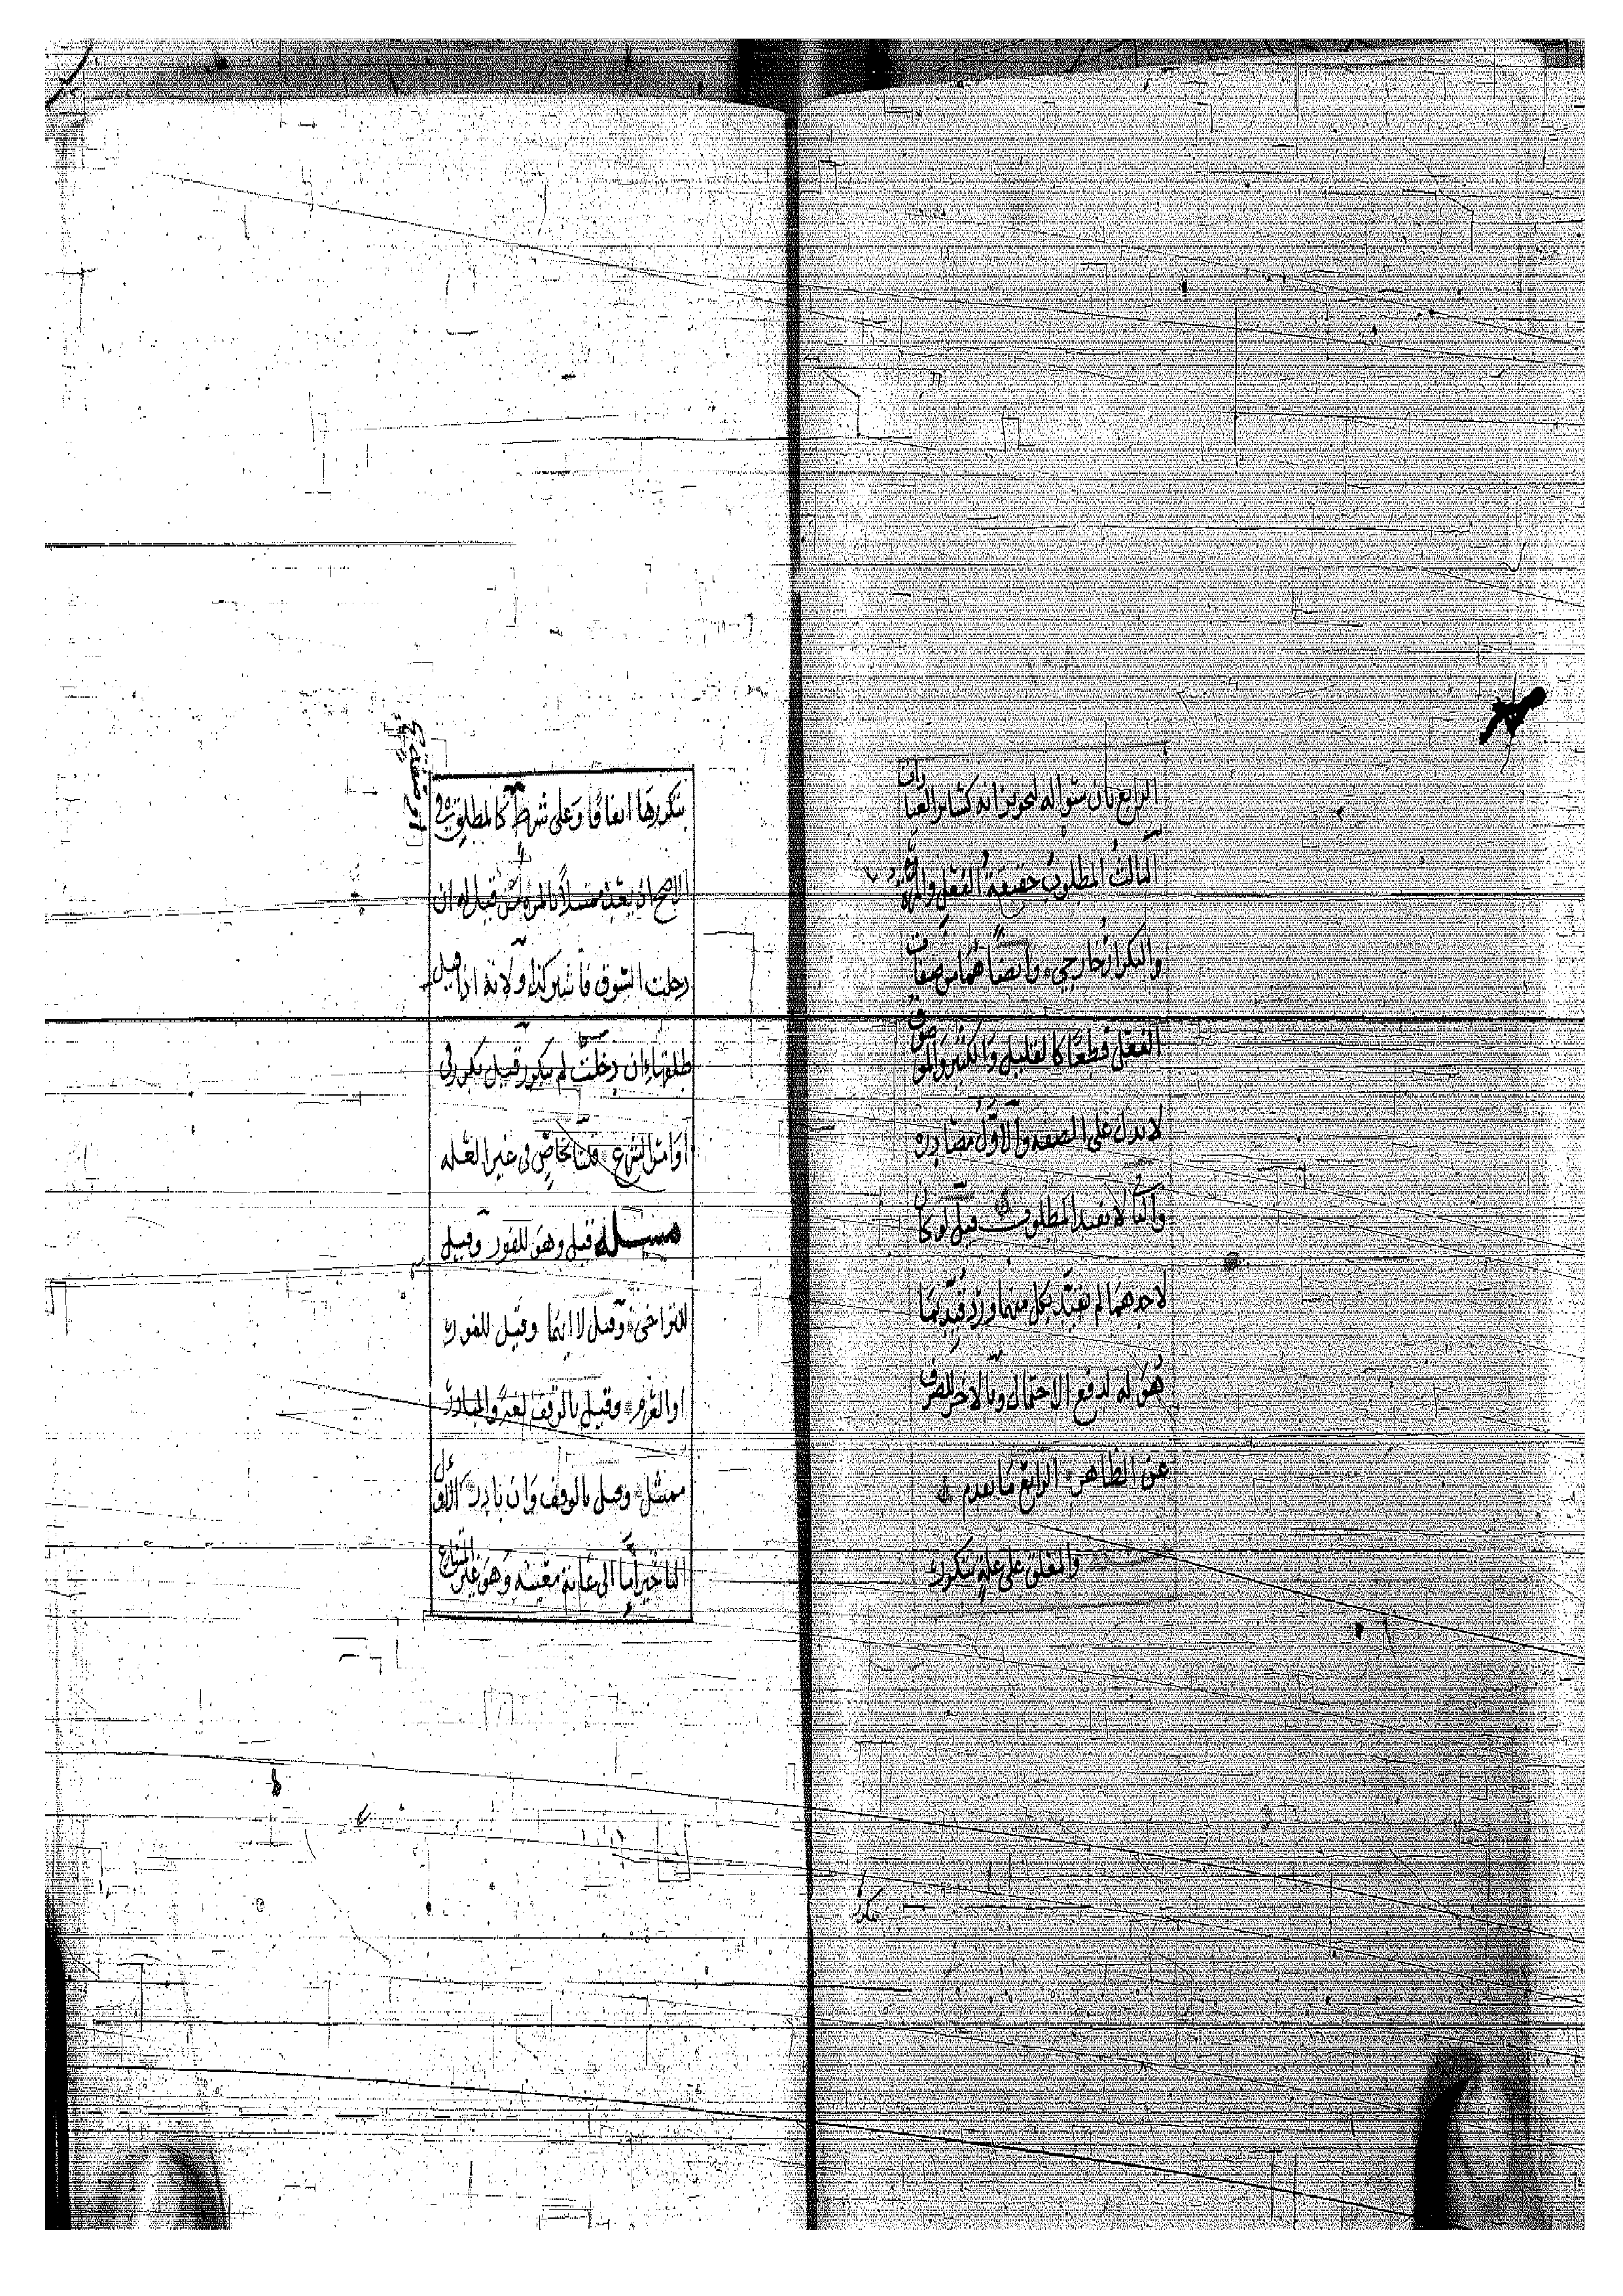 الرابع بان سؤاله لتجويز انه كسائر العبا وان
الثالث المطلوب حقيقة الفعل والمرة
والتكرار خارجي وايضا هما من صفات
الفعل قطعا كالقليل والكثير والموصوف
لا يدل على الصفة والاول مصادرة
والثاني لا يفيد المطلوب قيل لو كان
لاحدهما لم يقيد بكل منهما ورد قيد بما
هو له لدفع الاحتمال وبالاخر للصرف
عن الظاهر الرابع ما تقدم
والمعلق على علة يتكرر
بتكررها اتفاقا وعلى شرط كالمطلق في
الاصح اذ يعد ممتثلا بالمرة من قيل له ان
دخلت السوق فاشتر كذا ولانه اذا قيل
طلقها ان دخلت لم يتكرر قيل تكرر في
اوامر الشرع قلنا خاص في غير العلة
مسئلة قيل وهو للفور وقيل
للتراخي وقيل لا ايهما وقيل للفور
او العزم وقيل بالوقف لغة والمبادر
ممتثل وقيل بالوقف وان بادر الاول
التأخير اما الى غاية معينة وهو غير المتنازع
تكرر